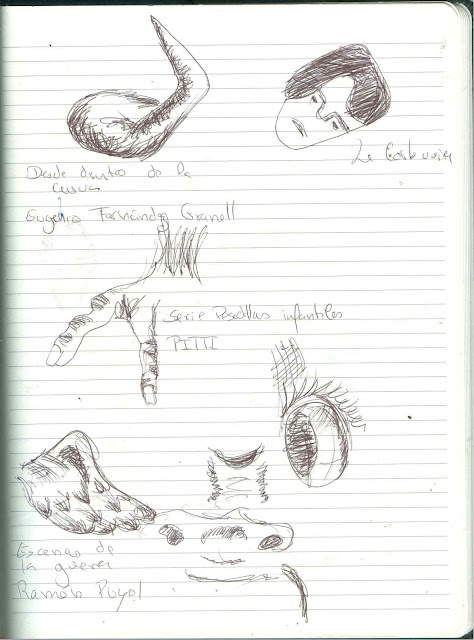 Le Corbusier
Desde dentro de la
Eugenio Fernández Granell
Serie Pesadillas infantiles
PITTI
Escenas de
la guerra
Ramón Puyol